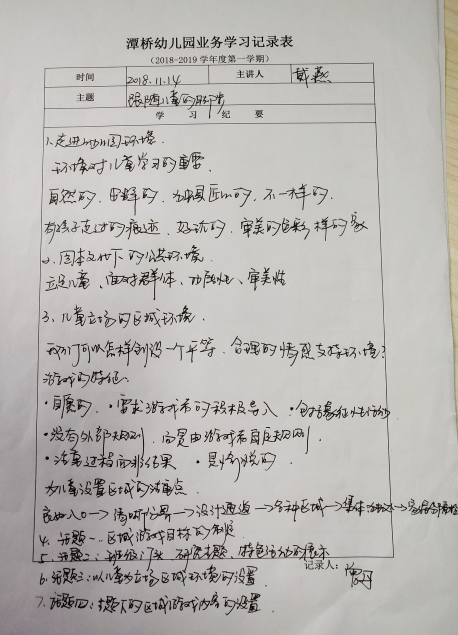 潭桥幼儿园业务学习记录表
（2018-2019 学年度第一学期）
时间 2018.11.14 主讲人 戴燕
主题 跟随儿童的脚步
学 习 纪 要
1.走进幼儿园环境.
环境对儿童学习的重要
自然的、 的、 的、不一样的.
有孩子走过的痕迹、好玩的、审美的色彩 样的家
2.园本文化下的公共环境.
立足儿童、面对群体、功能性、审美性
3、儿童立场的区域环境.
我们可以怎样创设一个平等、合理的情感支持环境?
游戏的特征:
·自愿的. ·需求游戏者的积极导入 ·
·没有外部规则,它是由游戏者自定规则
·注重过程而非结果 ·是愉悦的.
为儿童设置区域的注重点
→清晰位界→设计通道→各种区域→集体活动→
4. 话题一:区域游戏目标的制定
5. 话题二:班级 研究主题、特色活动的展示
6. 话题三:以儿童为立场区域环境的设置.
7. 话题四:主题下的区域游戏内容的设置.
记录人: